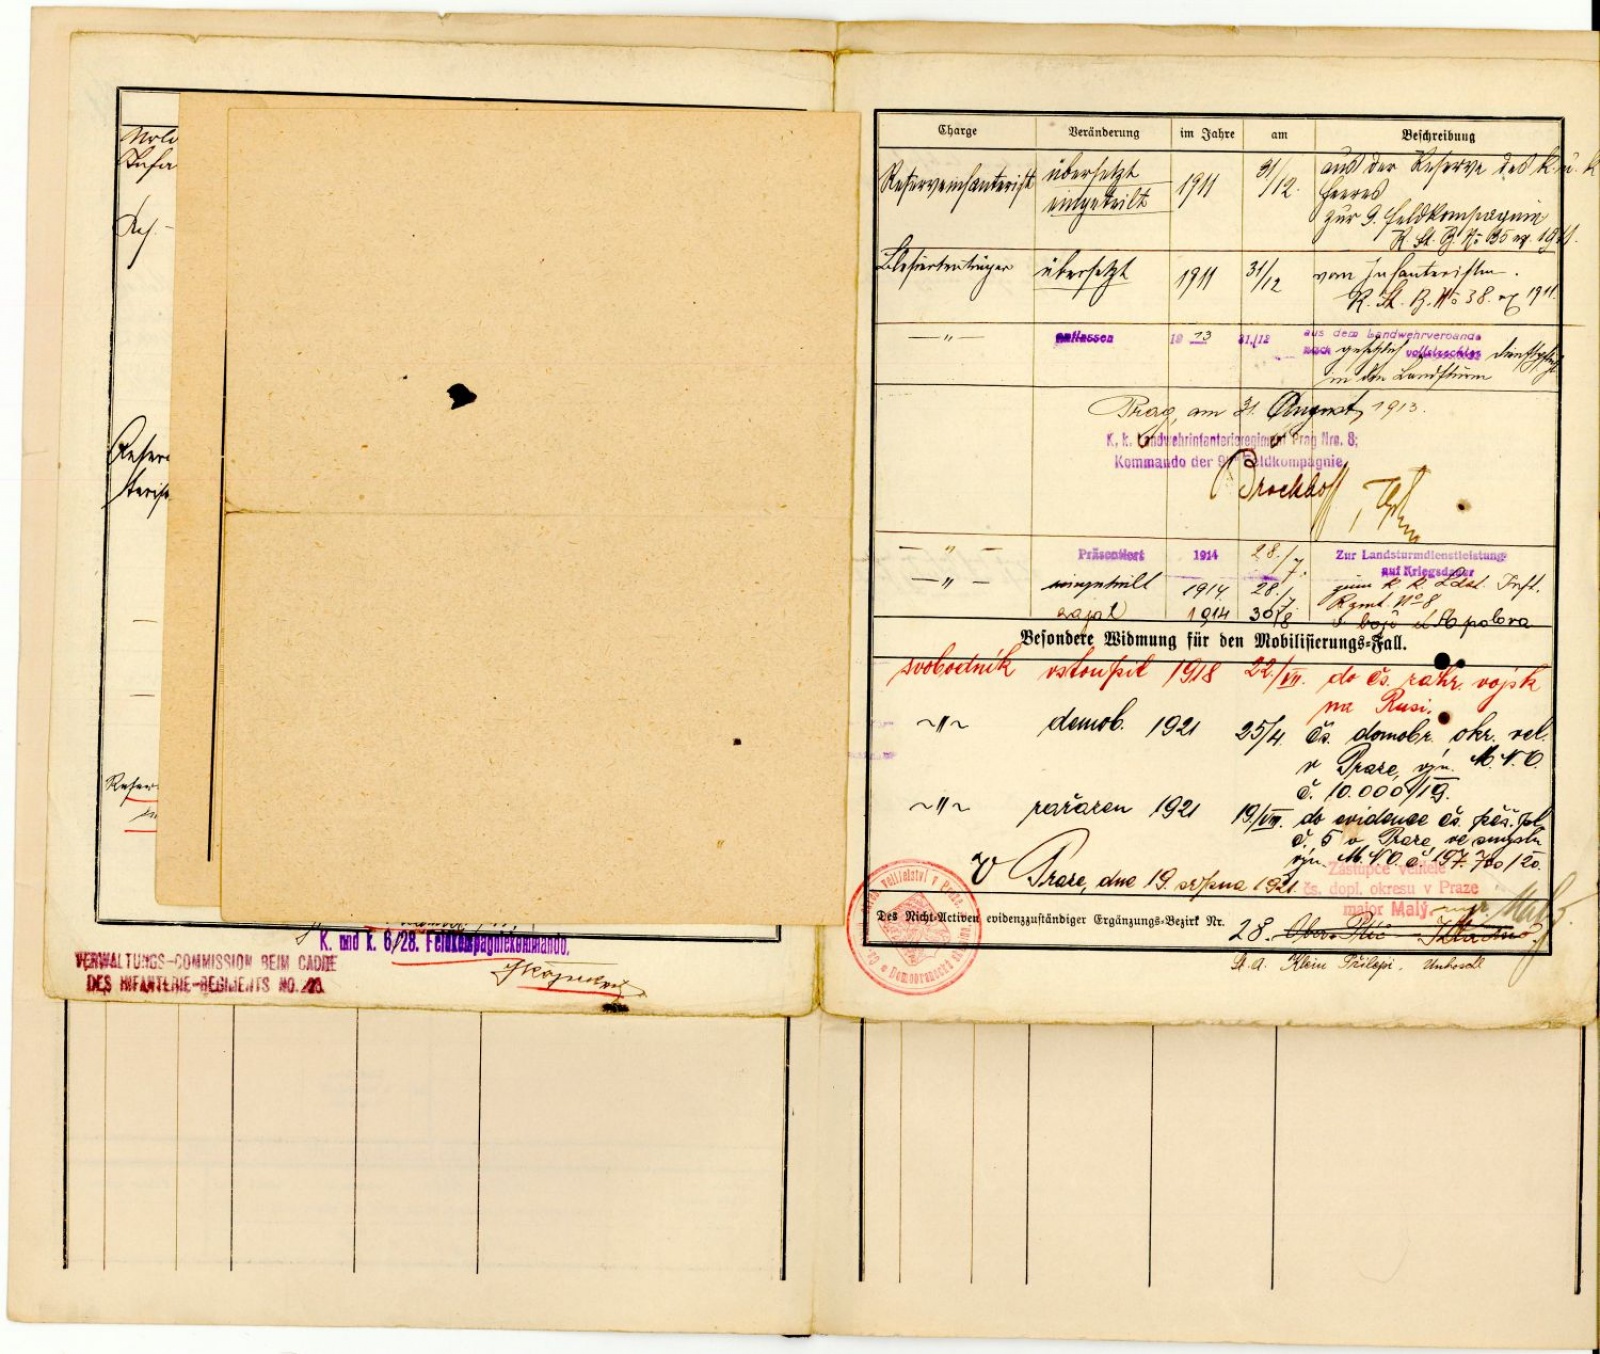 Reserv
K. und k. 6/28. Feldkompagniekommando.
VERWALTUNGS-COMMISSION BEIM CADRE
DES INFANTERIE-REGIMENTS NO. 28.
Charge Veränderung im Jahre am Beschreibung
Reserveinfanterist übersetzt 1911 31/12. aus der Reserve des k. u. k.
eingeteilt Heeres
zur 9. Feldkompagnie
R. St. B. No 35 ex 1911.
Blesiertenträger übersetzt 1911 31/12 vom Infanteristen.
R. St. B. No 38. ex 1911.
—"— entlassen 1913 31./12 aus dem Landwehrverbande
nach gesetzlich vollstreckter Dienstpflicht
in den Landsturm
Prag, am 31. August 1913.
K. k. Landwehrinfanterieregiment Prag Nro. 8;
Kommando der 9ten Feldkompagnie
—"— Präsentiert 1914 28./7. Zur Landsturmdienstleistung
auf Kriegsdauer
—"— eingeteilt 1914 28./7 zum k. k. Ldst. Inft.
Rgmt. No 8
zajat 1914 30/8 v boji u Opolova
Besondere Widmung für den Mobilisierungs-Fall.
svobodník vstoupil 1918 22./VII. do čs. zahr. vojsk
na Rusi.
~"~ demob. 1921 25/4. čs. domobr. okr. vel.
v Praze, výn. M.N.O.
č. 10.000/19.
~"~ zařazen 1921 19/VIII. do evidence čs. pěš. pl.
č. 5 v Praze, ve smyslu
výn. M.N.O. č. 197.700/20.
V Praze, dne 19. srpna 1921.
Zástupce velitele
čs. dopl. okresu v Praze
major Malý
Des Nicht-Activen evidenzzuständiger Ergänzungs-Bezirk Nr. 28.
St. A. Klein Přilepi, Unhoscht